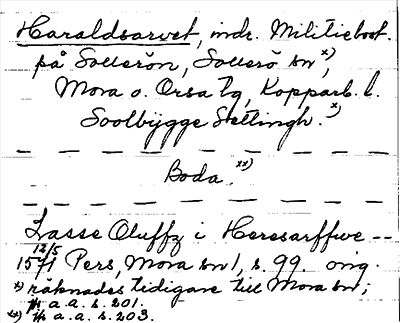 Haraldsarvet, indr. Militiebost.
på Sollerön, Sollerö sn x),
Mora o. Orsa tg, Kopparb. l.
Soolbÿgge Stellingh. x)
Boda. xx)
Lasse Oluffz i Heresarffwe --
12/5
1541 Pers, Mora sn 1, s. 99. orig.
x) räknades tidigare till Mora sn;
a.a. s. 201.
xx) a.a. s. 203.